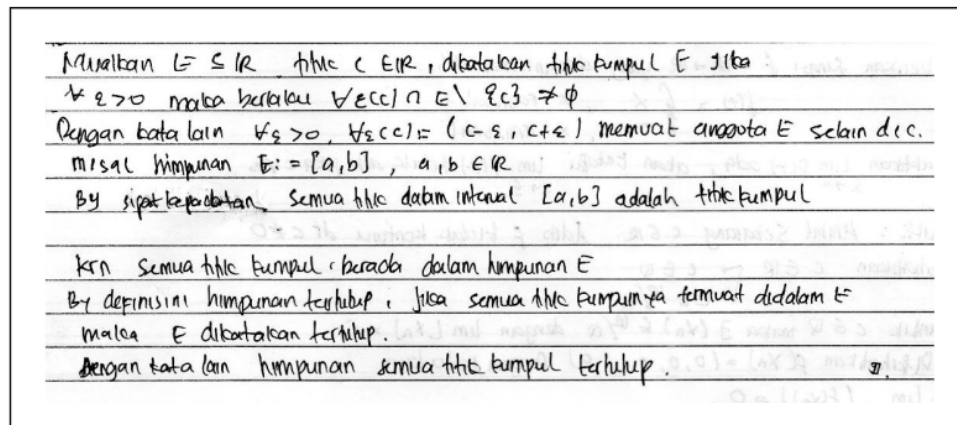 Misalkan E ⊆ IR titik c ∈ IR, dikatakan titik kumpul E jika
∀ ε>0 maka berlaku Vε(c) ∩ E\ {c} ≠ ϕ
Dengan kata lain ∀ε>0, Vε(c) = (c-ε, c+ε) memuat anggota E selain di c.
misal himpunan E:= [a,b], a,b ∈ IR
By sipat kepadatan, semua titik dalam interval [a,b] adalah titik kumpul
krn semua titik kumpul berada dalam himpunan E
By definisini himpunan tertutup, jika semua titik kumpulnya termuat didalam E
maka E dikatakan tertutup.
Dengan kata lain himpunan semua titik kumpul tertutup.